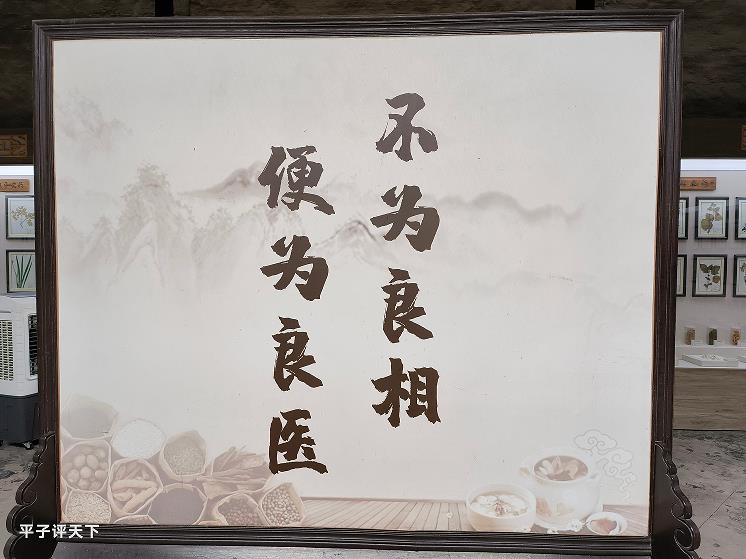 不为良相
便为良医
平子评天下